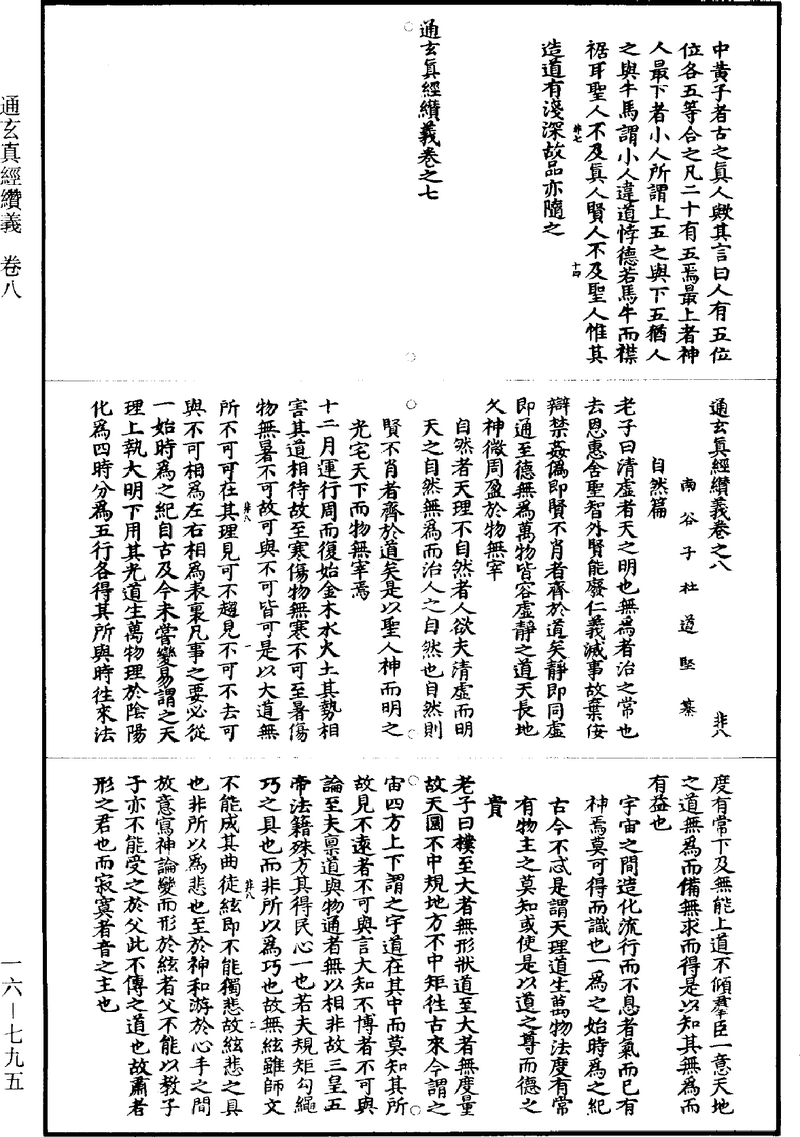 中黃子者古之眞人歟其言曰人有五位
位各五等合之凡二十有五焉最上者神
人最下者小人所謂上五之與下五猶人
之與牛馬謂小人違道悖德若馬牛而襟
裾耳聖人不及眞人賢人不及聖人惟其
非七
十四
造道有淺深故品亦隨之
通玄眞經纘義卷之七
通玄眞經纘義卷之八
非八
南谷子杜道堅纂
自然篇
老子曰清虛者天之明也無爲者治之常也
去恩惠舍聖智外賢能廢仁義滅事故棄佞
辯禁姦僞即賢不肖者齊於道矣靜即同虛
即通至德無爲萬物皆容虛靜之道天長地
久神微周盈於物無宰
自然者天理不自然者人欲夫清虛而明
天之自然無爲而治人之自然也自然則
賢不肖者齊於道矣是以聖人神而明之
光宅天下而物無宰焉
十二月運行周而復始金木水火土其勢相
害其道相待故至寒傷物無寒不可至暑傷
物無暑不可故可與不可皆可是以大道無
所不可可在其理見可不趨見不可不去可
非八
一
與不可相爲左右相爲表裏凡事之要必從
一始時爲之紀自古及今未嘗變易謂之天
理上執大明下用其光道生萬物理於陰陽
化爲四時分爲五行各得其所與時往來法
度有常下及無能上道不傾羣臣一意天地
之道無爲而備無求而得是以知其無爲而
有益也
宇宙之間造化流行而不息者氣而已有
神焉莫可得而識也一爲之始時爲之紀
古今不忒是謂天理道生萬物法度有常
有物主之莫知或使是以道之尊而德之
貴
老子曰樸至大者無形狀道至大者無度量
故天圓不中規地方不中矩往古來今謂之
宙四方上下謂之宇道在其中而莫知其所
故見不遠者不可與言大知不博者不可與
論至夫稟道與物通者無以相非故三皇五
帝法籍殊方其得民心一也若夫規矩勾繩
巧之具也而非所以爲巧也故無絃雖師文
非八
二
不能成其曲徒絃即不能獨悲故絃悲之具
也非所以爲悲也至於神和游於心手之間
放意寫神論變而形於絃者父不能以教子
子亦不能受之於父此不傳之道也故肅者
形之君也而寂寞者音之主也
通玄真經纘義　卷八
一六－七九五